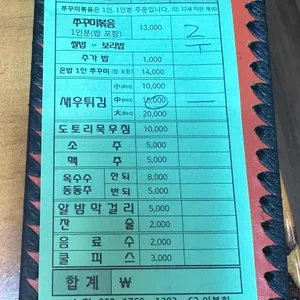 쭈꾸미볶음은 1인, 1인분 주문입니다.
쭈꾸미볶음 1인분(밥 포함) 13,000 2
쌀밥 or 보리밥
추가 밥 1,000
혼밥 1인 쭈꾸미 (밥 포함) 14,000
새우튀김
小(소) 10,000
中(中) 15,000 —
大(大) 20,000
도토리묵무침 10,000
소 주 5,000
맥 주 5,000
옥수수 동동주
한되 8,000
반되 5,000
알밤막걸리 5,000
잔 술 2,000
음 료 수 2,000
쿨 피 스 3,000
합계 ₩